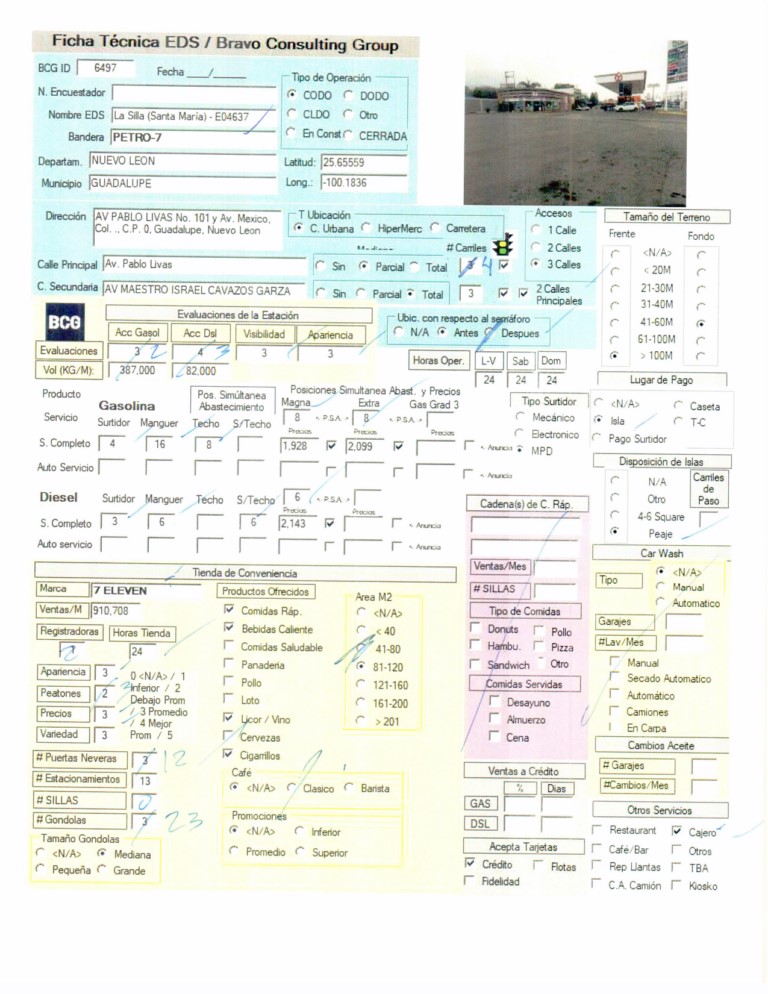 Ficha Técnica EDS / Bravo Consulting Group
BCG ID 6497 Fecha ___/______
N. Encuestador
Nombre EDS La Silla (Santa María) - E04637
Bandera PETRO-7
Tipo de Operación
CODO DODO
CLDO Otro
En Const CERRADA
Departam. NUEVO LEON
Municipio GUADALUPE
Latitud: 25.65559
Long.: -100.1836
Dirección AV PABLO LIVAS No. 101 y Av. Mexico,
Col. ., C.P. 0, Guadalupe, Nuevo Leon
T Ubicación
C. Urbana HiperMerc Carretera
# Carriles
Accesos
1 Calle
2 Calles
3 Calles
Calle Principal Av. Pablo Livas Sin Parcial Total 3 4
C. Secundaria AV MAESTRO ISRAEL CAVAZOS GARZA Sin Parcial Total 3 2 Calles
Principales
Tamaño del Terreno
Frente Fondo
<N/A>
< 20M
21-30M
31-40M
41-60M
61-100M
> 100M
BCG
Evaluaciones de la Estación
Acc Gasol Acc Dsl Visibilidad Apariencia
Evaluaciones 3 2 4 3 3 3
Vol (KG/M): 387,000 82,000
Ubic. con respecto al semáforo
N/A Antes Despues
Horas Oper. L-V Sab Dom
24 24 24
Lugar de Pago
<N/A> Caseta
Isla T-C
Pago Surtidor
Producto
Servicio
Gasolina
Pos. Simúltanea
Abastecimiento
Posiciones Simultanea Abast. y Precios
Magna Extra Gas Grad 3
8 < P.S.A. > 8 < P.S.A. >
Surtidor Manguer Techo S/Techo
Precios Precios Precios
S. Completo 4 16 8 1,928 2,099 < Anuncia
Auto Servicio < Anuncia
Tipo Surtidor
Mecánico
Electronico
MPD
Disposición de Islas
N/A
Otro
4-6 Square
Peaje
Carriles
de
Paso
Diesel Surtidor Manguer Techo S/Techo 6 < P.S.A. >
Precios Precios
S. Completo 3 6 6 2,143 < Anuncia
Auto servicio < Anuncia
Cadena(s) de C. Ráp.
Ventas/Mes
# SILLAS
Tipo de Comidas
Donuts Pollo
Hambu. Pizza
Sandwich Otro
Comidas Servidas
Desayuno
Almuerzo
Cena
Car Wash
Tipo
<N/A>
Manual
Automatico
Garajes
#Lav/Mes
Manual
Secado Automatico
Automático
Camiones
En Carpa
Cambios Aceite
# Garajes
#Cambios/Mes
Tienda de Conveniencia
Marca 7 ELEVEN
Ventas/M 910,708
Registradoras Horas Tienda
2 24
Apariencia 3
Peatones 2 3
Precios 3
Variedad 3
0 <N/A> / 1
Inferior / 2
Debajo Prom
/ 3 Promedio
/ 4 Mejor
Prom / 5
# Puertas Neveras 3 12
# Estacionamientos 13
# SILLAS 0
# Gondolas 3 23
Tamaño Gondolas
<N/A> Mediana
Pequeña Grande
Productos Ofrecidos
Comidas Ráp.
Bebidas Caliente
Comidas Saludable
Panaderia
Pollo
Loto
Licor / Vino
Cervezas
Cigarrillos
Area M2
<N/A>
< 40
41-80
81-120
121-160
161-200
> 201
Café
<N/A> Clasico Barista
Promociones
<N/A> Inferior
Promedio Superior
Ventas a Crédito
% Dias
GAS
DSL
Acepta Tarjetas
Crédito Flotas
Fidelidad
Otros Servicios
Restaurant Cajero
Café/Bar Otros
Rep Llantas TBA
C.A. Camión Kiosko